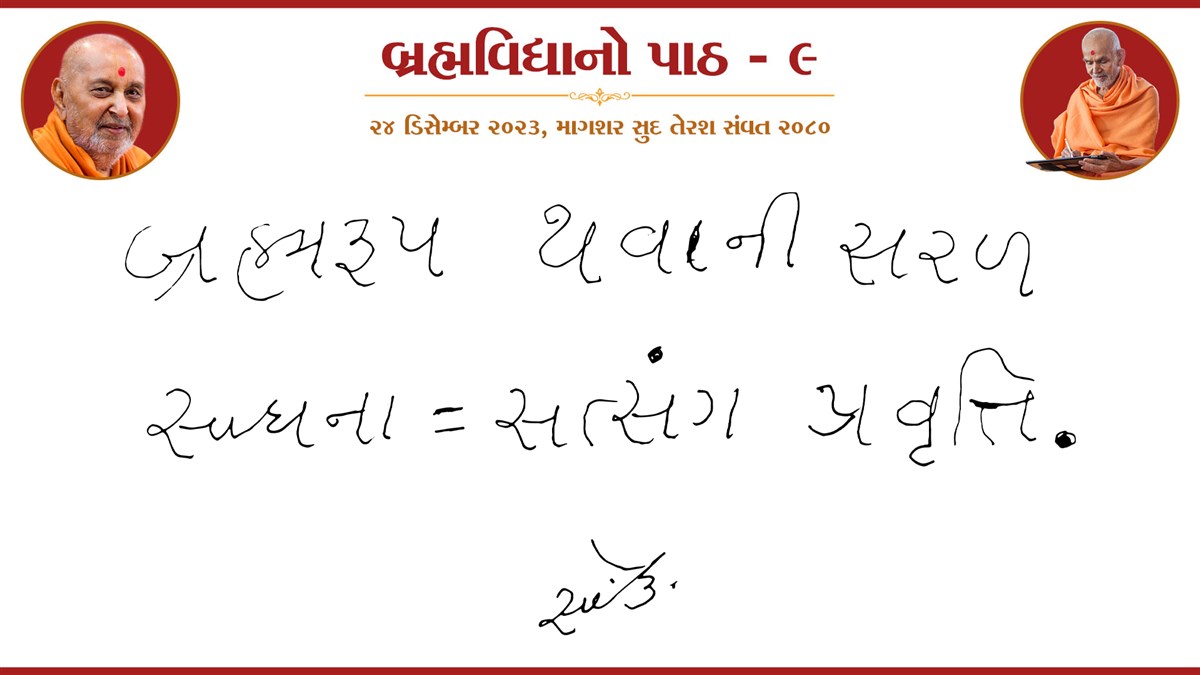 બ્રહ્મવિદ્યાનો પાઠ - ૯
૨૪ ડિસેમ્બર ૨૦૨૩, માગશર સુદ તેરશ સંવત ૨૦૮૦
બ્રહ્મરૂપ થવાની સરળ
સાધના = સત્સંગ પ્રવૃત્તિ.